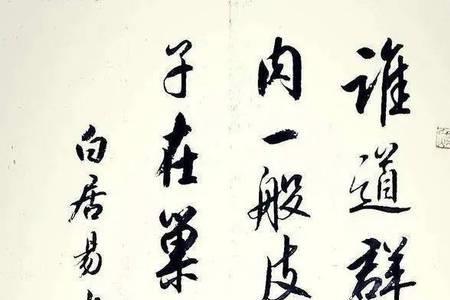 誰道群
肉一般皮
子在巢
白居易